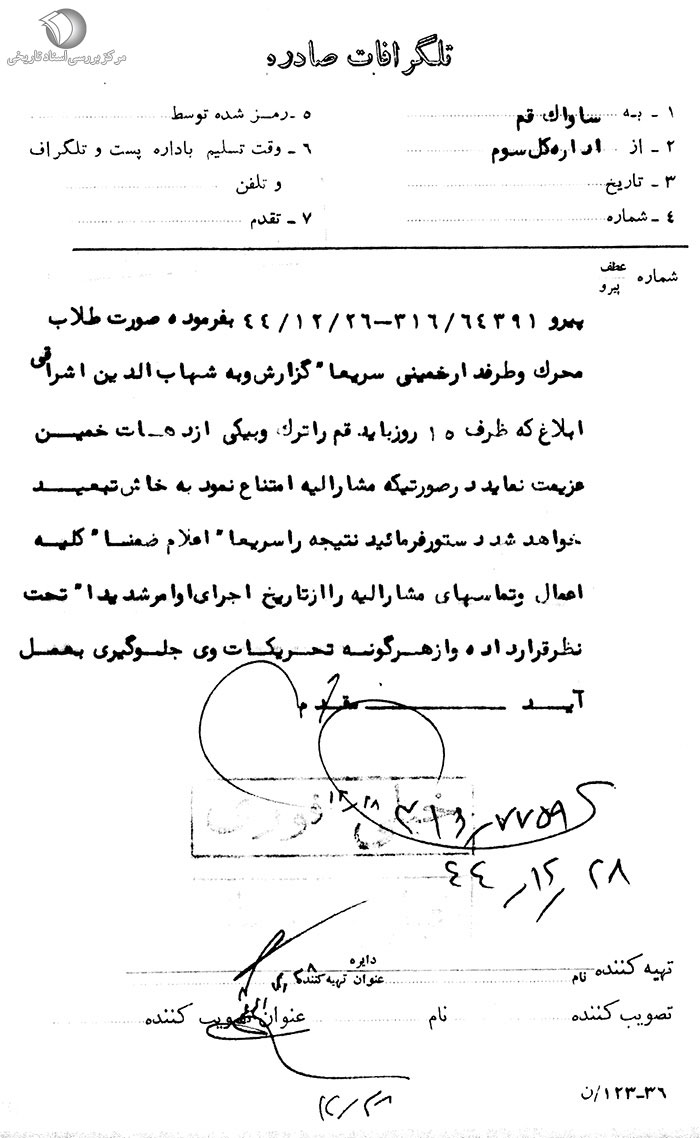 مرکز بررسی اسناد تاریخی
تلگرافات صادره
۱ - به ساواك قم
۲ - از اداره كل سوم
۳ - تاریخ
۴ - شماره
۵ - رمز شده توسط
۶ - وقت تسلیم باداره پست و تلگراف
و تلفن
۷ - تقدم
شماره عطف
پیرو
پیرو ۳۱۶/۶۴۳۹۱-۴۴/۱۲/۲۶ بفرموده صورت طلاب
محرك و طرفدار خمینی سریعا" گزارش و به شهاب الدین اشراقی
ابلاغ که ظرف ۱۵ روز باید قم را ترك و بیکی از دهات خمین
عزیمت نماید در صورتیکه مشارالیه امتناع نمود به خاش تبعید
خواهد شد دستور فرمائید نتیجه را سریعا" اعلام ضمنا" کلیه
اعمال و تماسهای مشارالیه را از تاریخ اجرای اوامر شدیدا" تحت
نظر قرار داده و از هرگونه تحریکات وی جلوگیری بعمل
آید مقدم
خیلی فوری
۱۲/۲۸
۴۴/۱۲/۲۸
تهیه کننده نام دایره
عنوان تهیه کننده
تصویب کننده نام عنوان تصویب کننده
۱۲/۲۸
۳۶-۱۲۳/ن